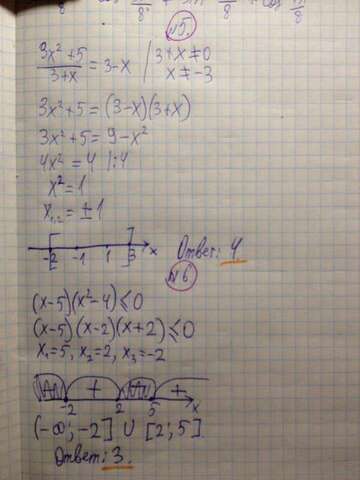 №5.
3x²+5 / 3+x = 3-x | 3+x≠0
x≠-3
3x²+5=(3-x)(3+x)
3x²+5=9-x²
4x²=4 |:4
x²=1
x₁,₂=±1
-2 -1 1 3 x
Ответ: 4
№6
(x-5)(x²-4)≤0
(x-5)(x-2)(x+2)≤0
x₁=5, x₂=2, x₃=-2
+ +
-2 2 5 x
(-∞;-2] ∪ [2;5].
Ответ: 3.